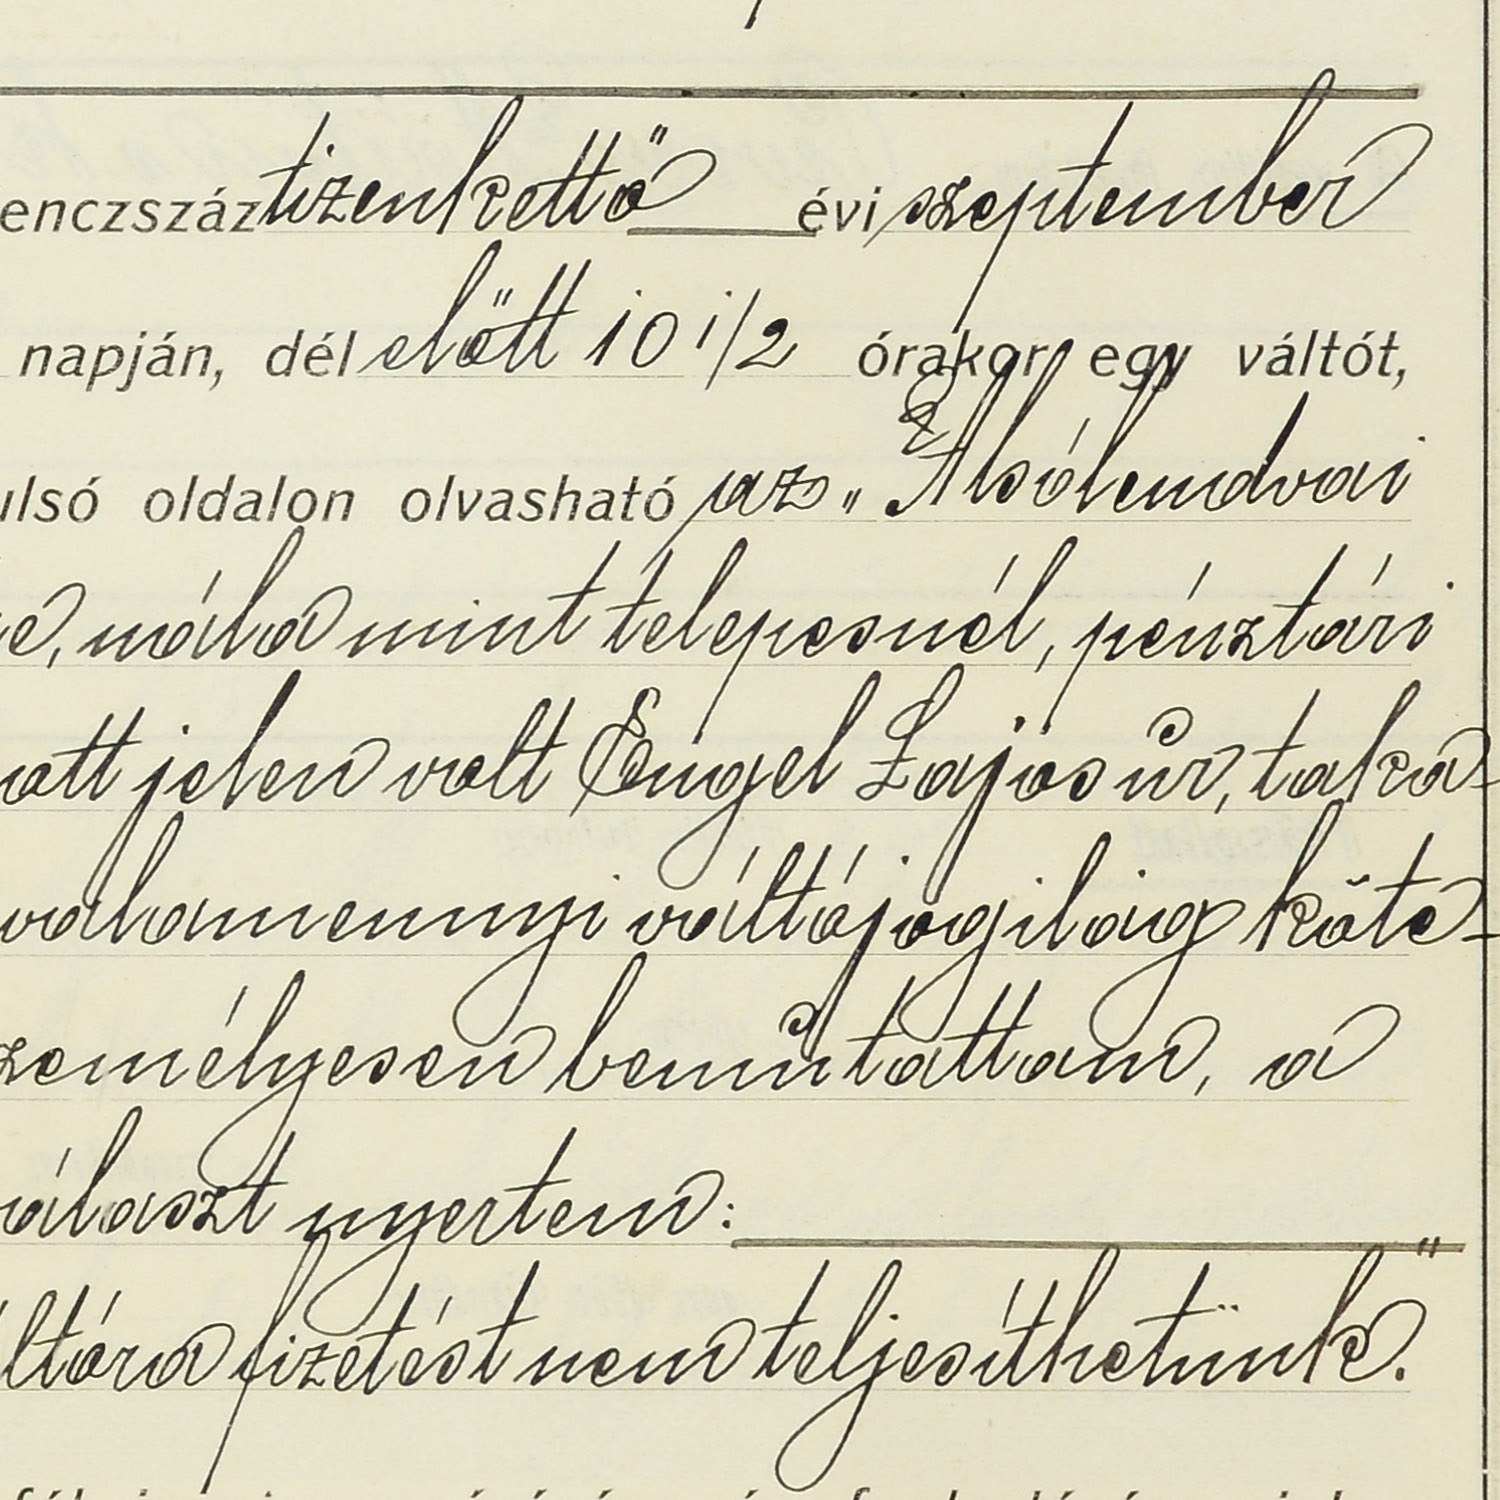 enczszáz tizenkettő évi szeptember
napján, dél előtt 10 1/2 órakor egy váltót,
ulsó oldalon olvasható az „Alsólendvai
e, nála mint telepesnél, pénztári
att jelen volt Engel Lajos úr, taka-
valamennyi váltójogilag köte-
zemélyesen bemutattam, a
álaszt nyertem:
ltóra fizetést nem teljesíthetünk."